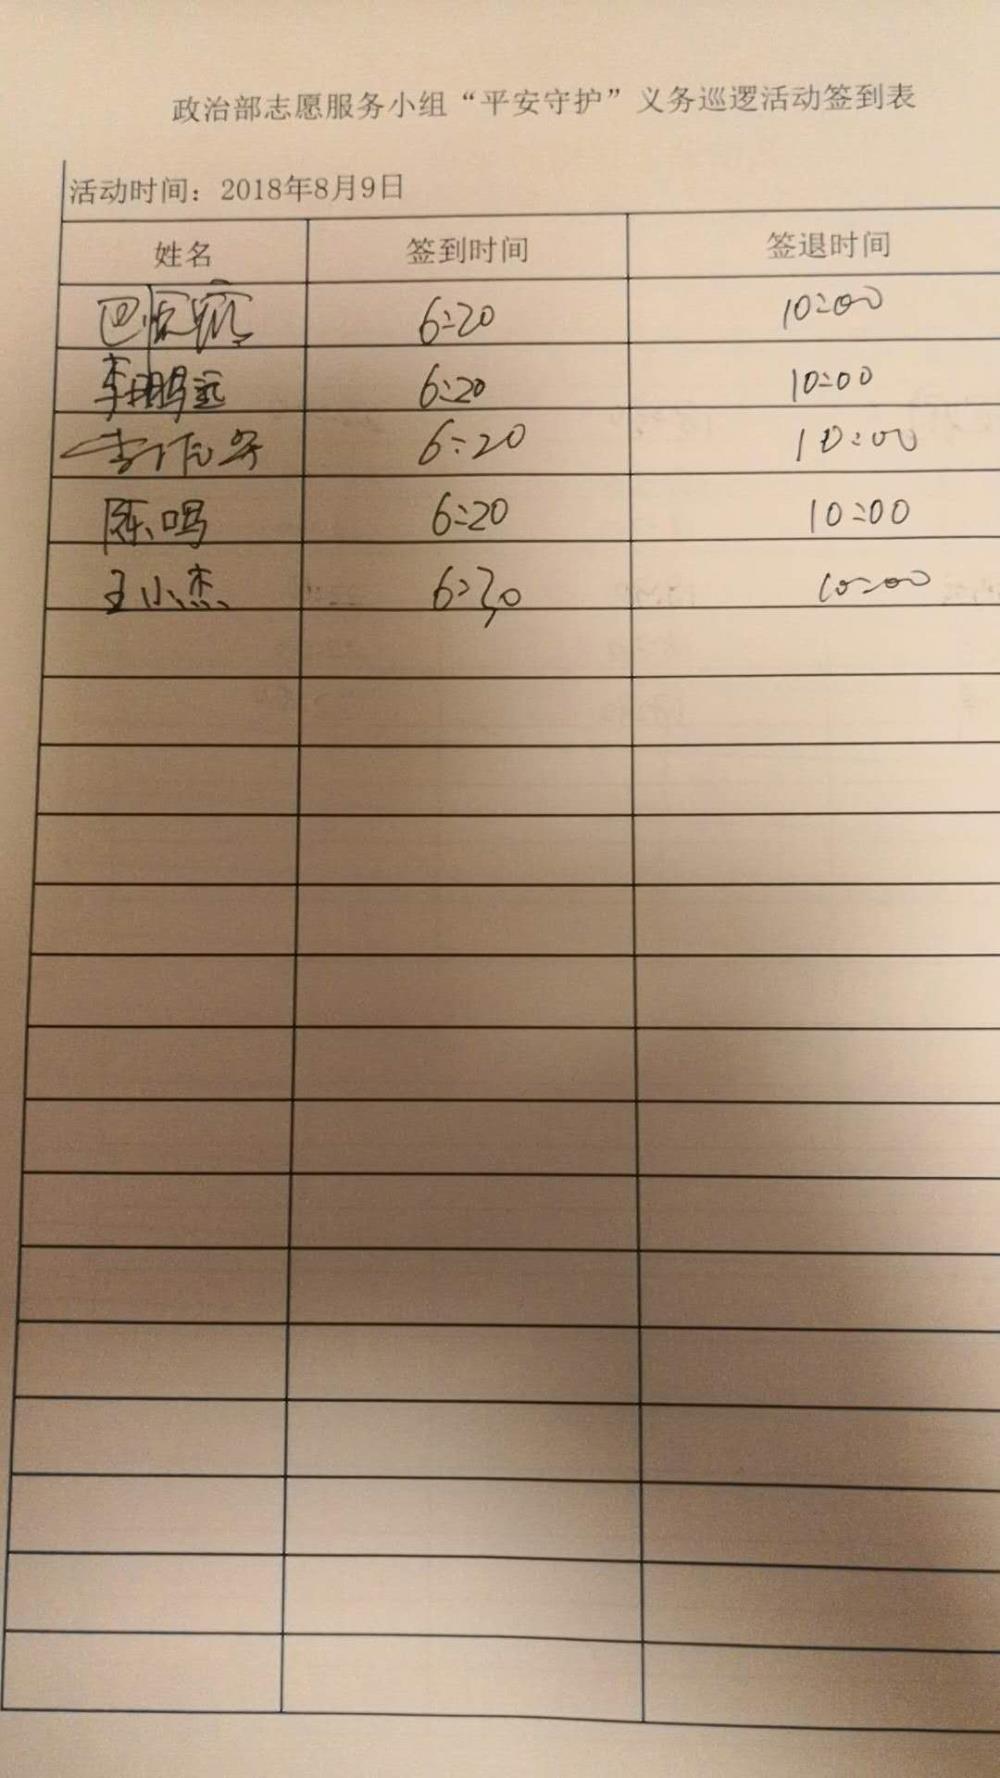 政治部志愿服务小组“平安守护”义务巡逻活动签到表
活动时间：2018年8月9日
姓名 签到时间 签退时间
6:20 10:00
李鹏远 6:20 10:00
李 6:20 10:00
陈鸣 6:20 10:00
王小杰 6:30 10:00